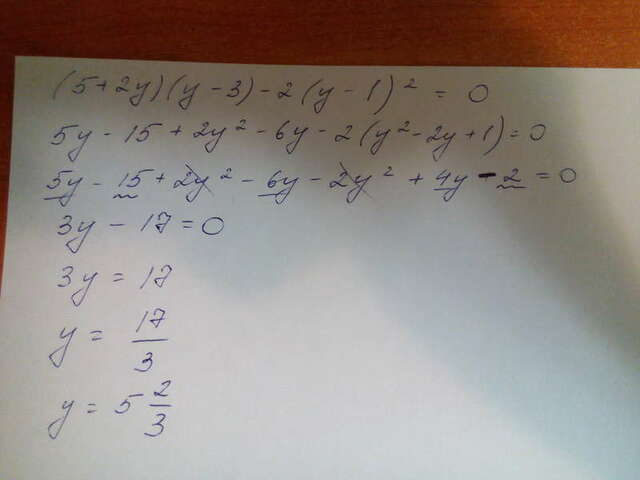 (5+2y)(y-3)-2(y-1)² = 0
5y-15+2y²-6y-2(y²-2y+1)=0
5y-15+2y²-6y-2y²+4y-2=0
3y-17=0
3y=17
y = 17/3
y = 5 2/3